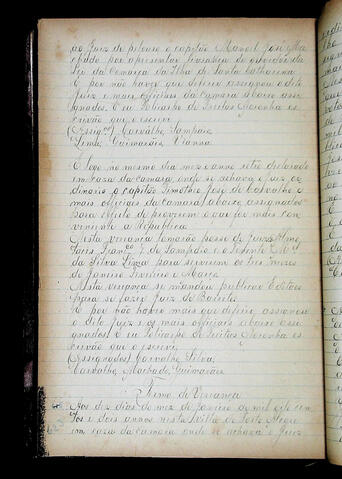 ao Juiz de pelouro o capitão Manoel José Ma
chado por apresentar provisão do ouvidor da
ley da comarca da Ilha de Santa Catharina
E por não haver que deferir assignou o dito
Juiz e mais officiaes da camara abaixo assi
gnados. E eu Policarpo de Freitas Noronha es
crivão que o escrevi
(Assignos) Carvalho Sampaio
Lima Guimarães Vianna
E logo no mesmo dia mez e anno retro declarado
em casa da camara onde se achava o juiz or
dinario o capitão Timotheo José de Carvalho e
mais officiaes da camara abaixo assignados
para effeito de proverem o que for mais con
veniente a Republica
Nesta vereança tomarão posse de Juizes Alme
taceis Franco J. de Sampaio e o Tenente
da Silva Lima para servirem os tres mezes
de Janeiro Fevereiro e Março
Nesta vereança se mandou publicar Editaes
para se fazer Juiz de Barrete
E por não haver mais que deferir assignou
o dito Juiz e os mais officiaes abaixo assi
gnados. E eu Policarpo de Freitas Noronha es
crivão que o escrevi
(Assignados) Carvalho, Silva,
Carvalho, Machado, Guimarães
Termo de Vereança
Aos dez dias do mez de Janeiro de mil oito cen
tos e dois annos nesta Villa de Porto Alegre
em casa da camara onde se achava o Juiz